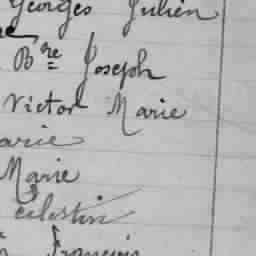 Georges Julien
Bre Joseph
Victor Marie
arie
Marie
Célestin
François